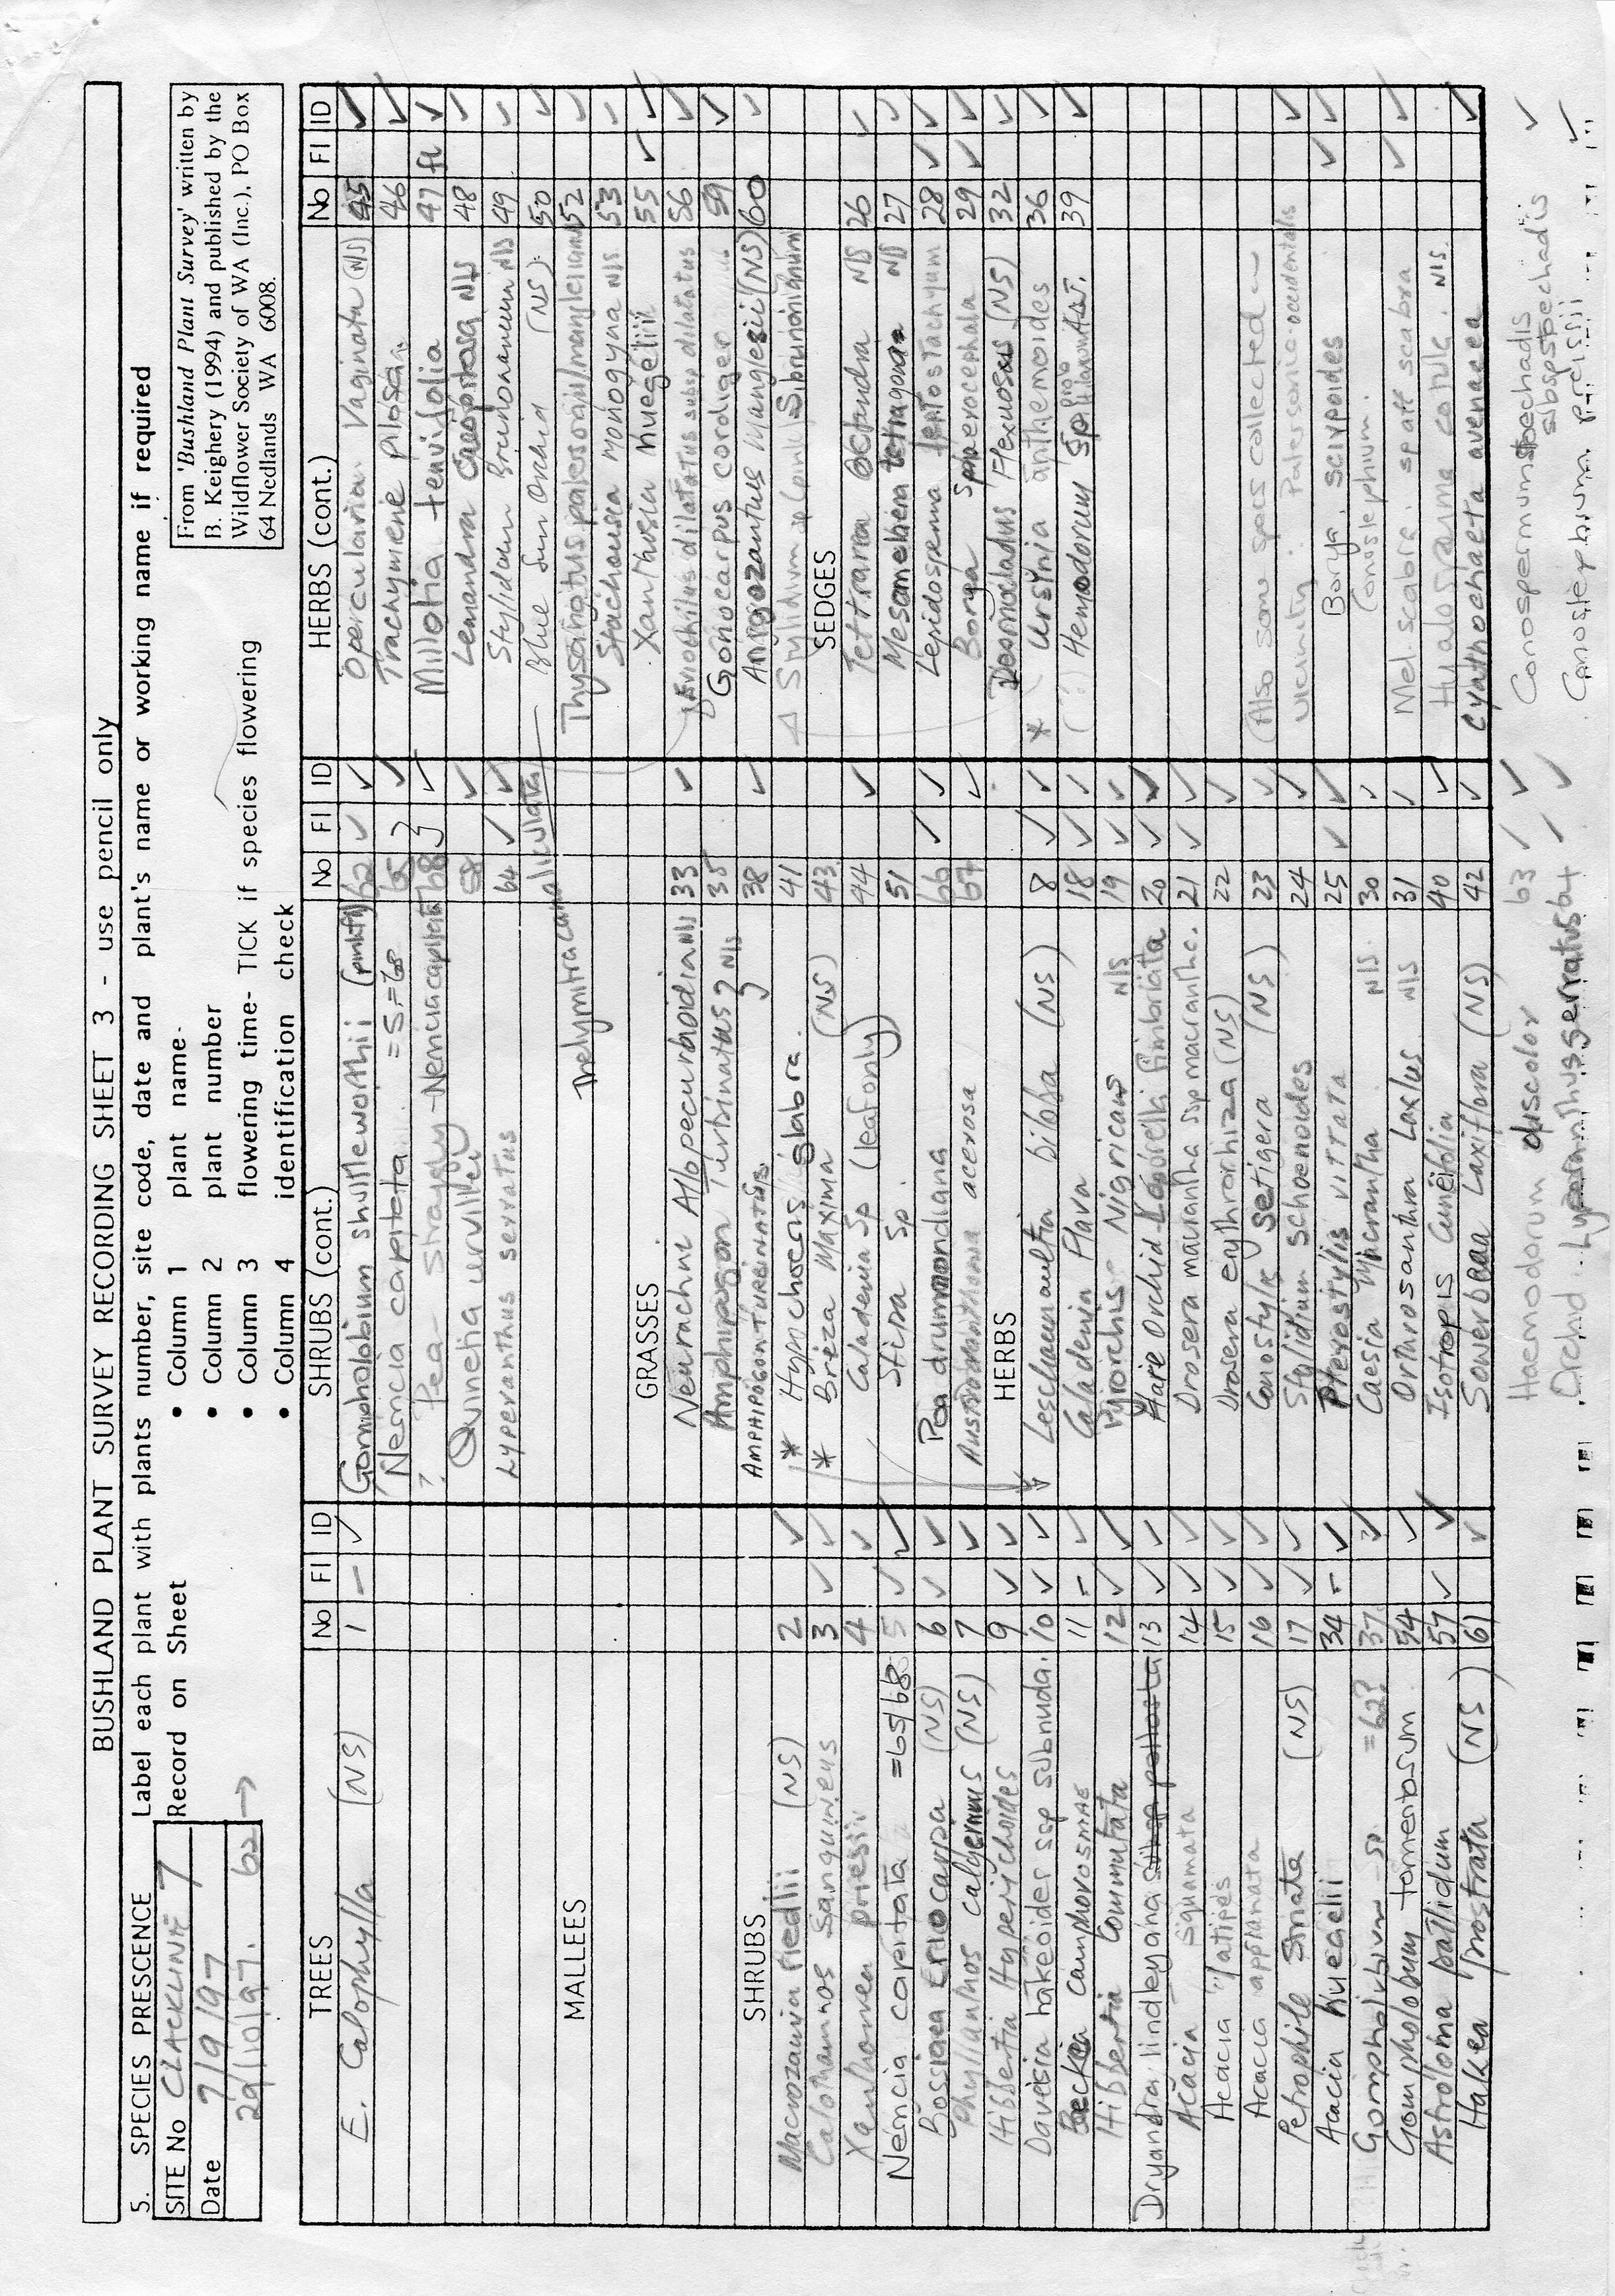 BUSHLAND PLANT SURVEY RECORDING SHEET 3 - use pencil only
5. SPECIES PRESCENCE
Label each plant with plants number, site code, date and plant's name or working name if required
SITE No CLACKLINE 7
Date 7/9/97
29/10/97. 62 →
Record on Sheet
• Column 1 plant name
• Column 2 plant number
• Column 3 flowering time- TICK if species flowering
• Column 4 identification check
From 'Bushland Plant Survey' written by
B. Keighery (1994) and published by the
Wildflower Society of WA (Inc.), PO Box
64 Nedlands WA 6008.
TREES No Fl ID
E. Calophylla (NS) 1 – ✓
MALLEES
SHRUBS
Macrozamia riedlii (NS) 2 ✓
Calothamnos Sanguineus 3 ✓ ✓
Xanthorrea priesii 4 ✓
Nemcia capitata =65/68 5 ✓ ✓
Bossiaea Eriocarpa (NS) 6 ✓ ✓
Phyllanthos calycinus (NS) 7 ✓
Hibbertia Hyperichoides 9 ✓ ✓
Daviesia hakeoides ssp subnuda. 10 ✓ ✓
Beckea camphorosmae 11 – ✓
Hibbertia Commutata 12 ✓ ✓
Dryandra lindleyana 13 ✓ ✓
Acacia Squamata 14 ✓ ✓
Acacia "latipes 15 ✓ ✓
Acacia applanata 16 ✓ ✓
Petrophile Striata (NS) 17 ✓ ✓
Acacia huegelii 34 – ✓
Gompholobium sp. =62? 37 ✓
Gompholobum tomentosum 54 ✓
Astroloma pallidum 57 ✓ ✓
Hakea prostrata (NS) 61 ✓
SHRUBS (cont.) No Fl ID
Gompholobium shuttleworthii (pinkfl) 62 ✓ ✓
Nemcia capitata =5=68 65 } ✓
? Pea - straggly - Nemcia capitata 68 } ✓
Quinetia urvillei 58 ✓
Lyperanthus serratus 64 ✓ ✓
Thelymitra canaliculata
GRASSES
Neurachne Alopecuroidia NIS 33 ✓
Amphipogon Turbinatus } NIS 35
AMPHIPOGON TURBINATUS. } 38 ✓
* Hypochoeris glabra. 41
* Breza Maxima (NS) 43
Caladenia Sp (leaf only) 44 ✓
Stipa Sp. 51
Poa drummondiana 66 ✓ ✓
Austrodanthonia acerosa 67 ✓
HERBS
Leschenaultia biloba (NS) 8 ✓ ✓
Caladenia Flava 18 ✓ ✓
Pyrorchis Nigricans NIS 19 ✓ ✓
Hare Orchid Leporella fimbriata 20 ✓ ✓
Drosera macrantha ssp macranthc. 21 ✓ ✓
Drosera erythrorhiza (NS) 22 ✓
Conostylis setigera (NS) 23 ✓
Stylidium Schoenoides 24 ✓
Pterostylis VITTATA 25 ✓ ✓
Caesia Micrantha NIS. 30 ✓
Orthrosanthu Laxlus NIS 31 ✓
Isotropis Cuneifolia 40 ✓
Sowerbeaa Laxiflora (NS) 42 ✓
Haemodorum discolor 63 ✓ ✓
Orchid Lyperanthus serratus 64 ✓ ✓
HERBS (cont.) No Fl ID
Opercularia Vaginata (NIS) 45 ✓
Trachymene pilosa 46 ✓
Millotia tenuifolia 47 fl ✓
Lomandra Caespitosa NIS 48 ✓
Stylidium Brunonianum NIS 49 ✓
Blue Sun Orchid (NS) 50 ✓
Thysanotus patersonii/manglesianus 52 ✓
Stackhousia Monogyna NIS 53 ✓
Xanthosia huegelii 55 ✓ ✓
Eriochilus dilatatus subsp dilatatus 56 ✓
Gonocarpus cordiger 59 ✓
Anigozantus Manglesii (NS) 60 ✓
Stylidium sp (pink)=S.brunonianum
SEDGES
Tetraria Octandra NIS 26 ✓
Mesomelaena tetragona NIS 27 ✓
Lepidosperma leptostachyum 28 ✓ ✓
Borya sphaerocephala 29 ✓ ✓
Desmocladus Flexuosus (NS) 32 ✓
* Ursinia anthemoides 36 ✓
Hemodorum Sp 39 ✓
(Also some specs collected in
vicinity. Patersonia occidentalis ✓
Borya. scirpoides ✓ ✓
Conostephium.
Mel. scabra. sp aff scabra ✓ ✓
Hyalosperma cotula. NIS.
Cyathochaeta avenacea ✓
Conospermum stoechadis
subsp stoechadis ✓
Conostephium preissii ✓